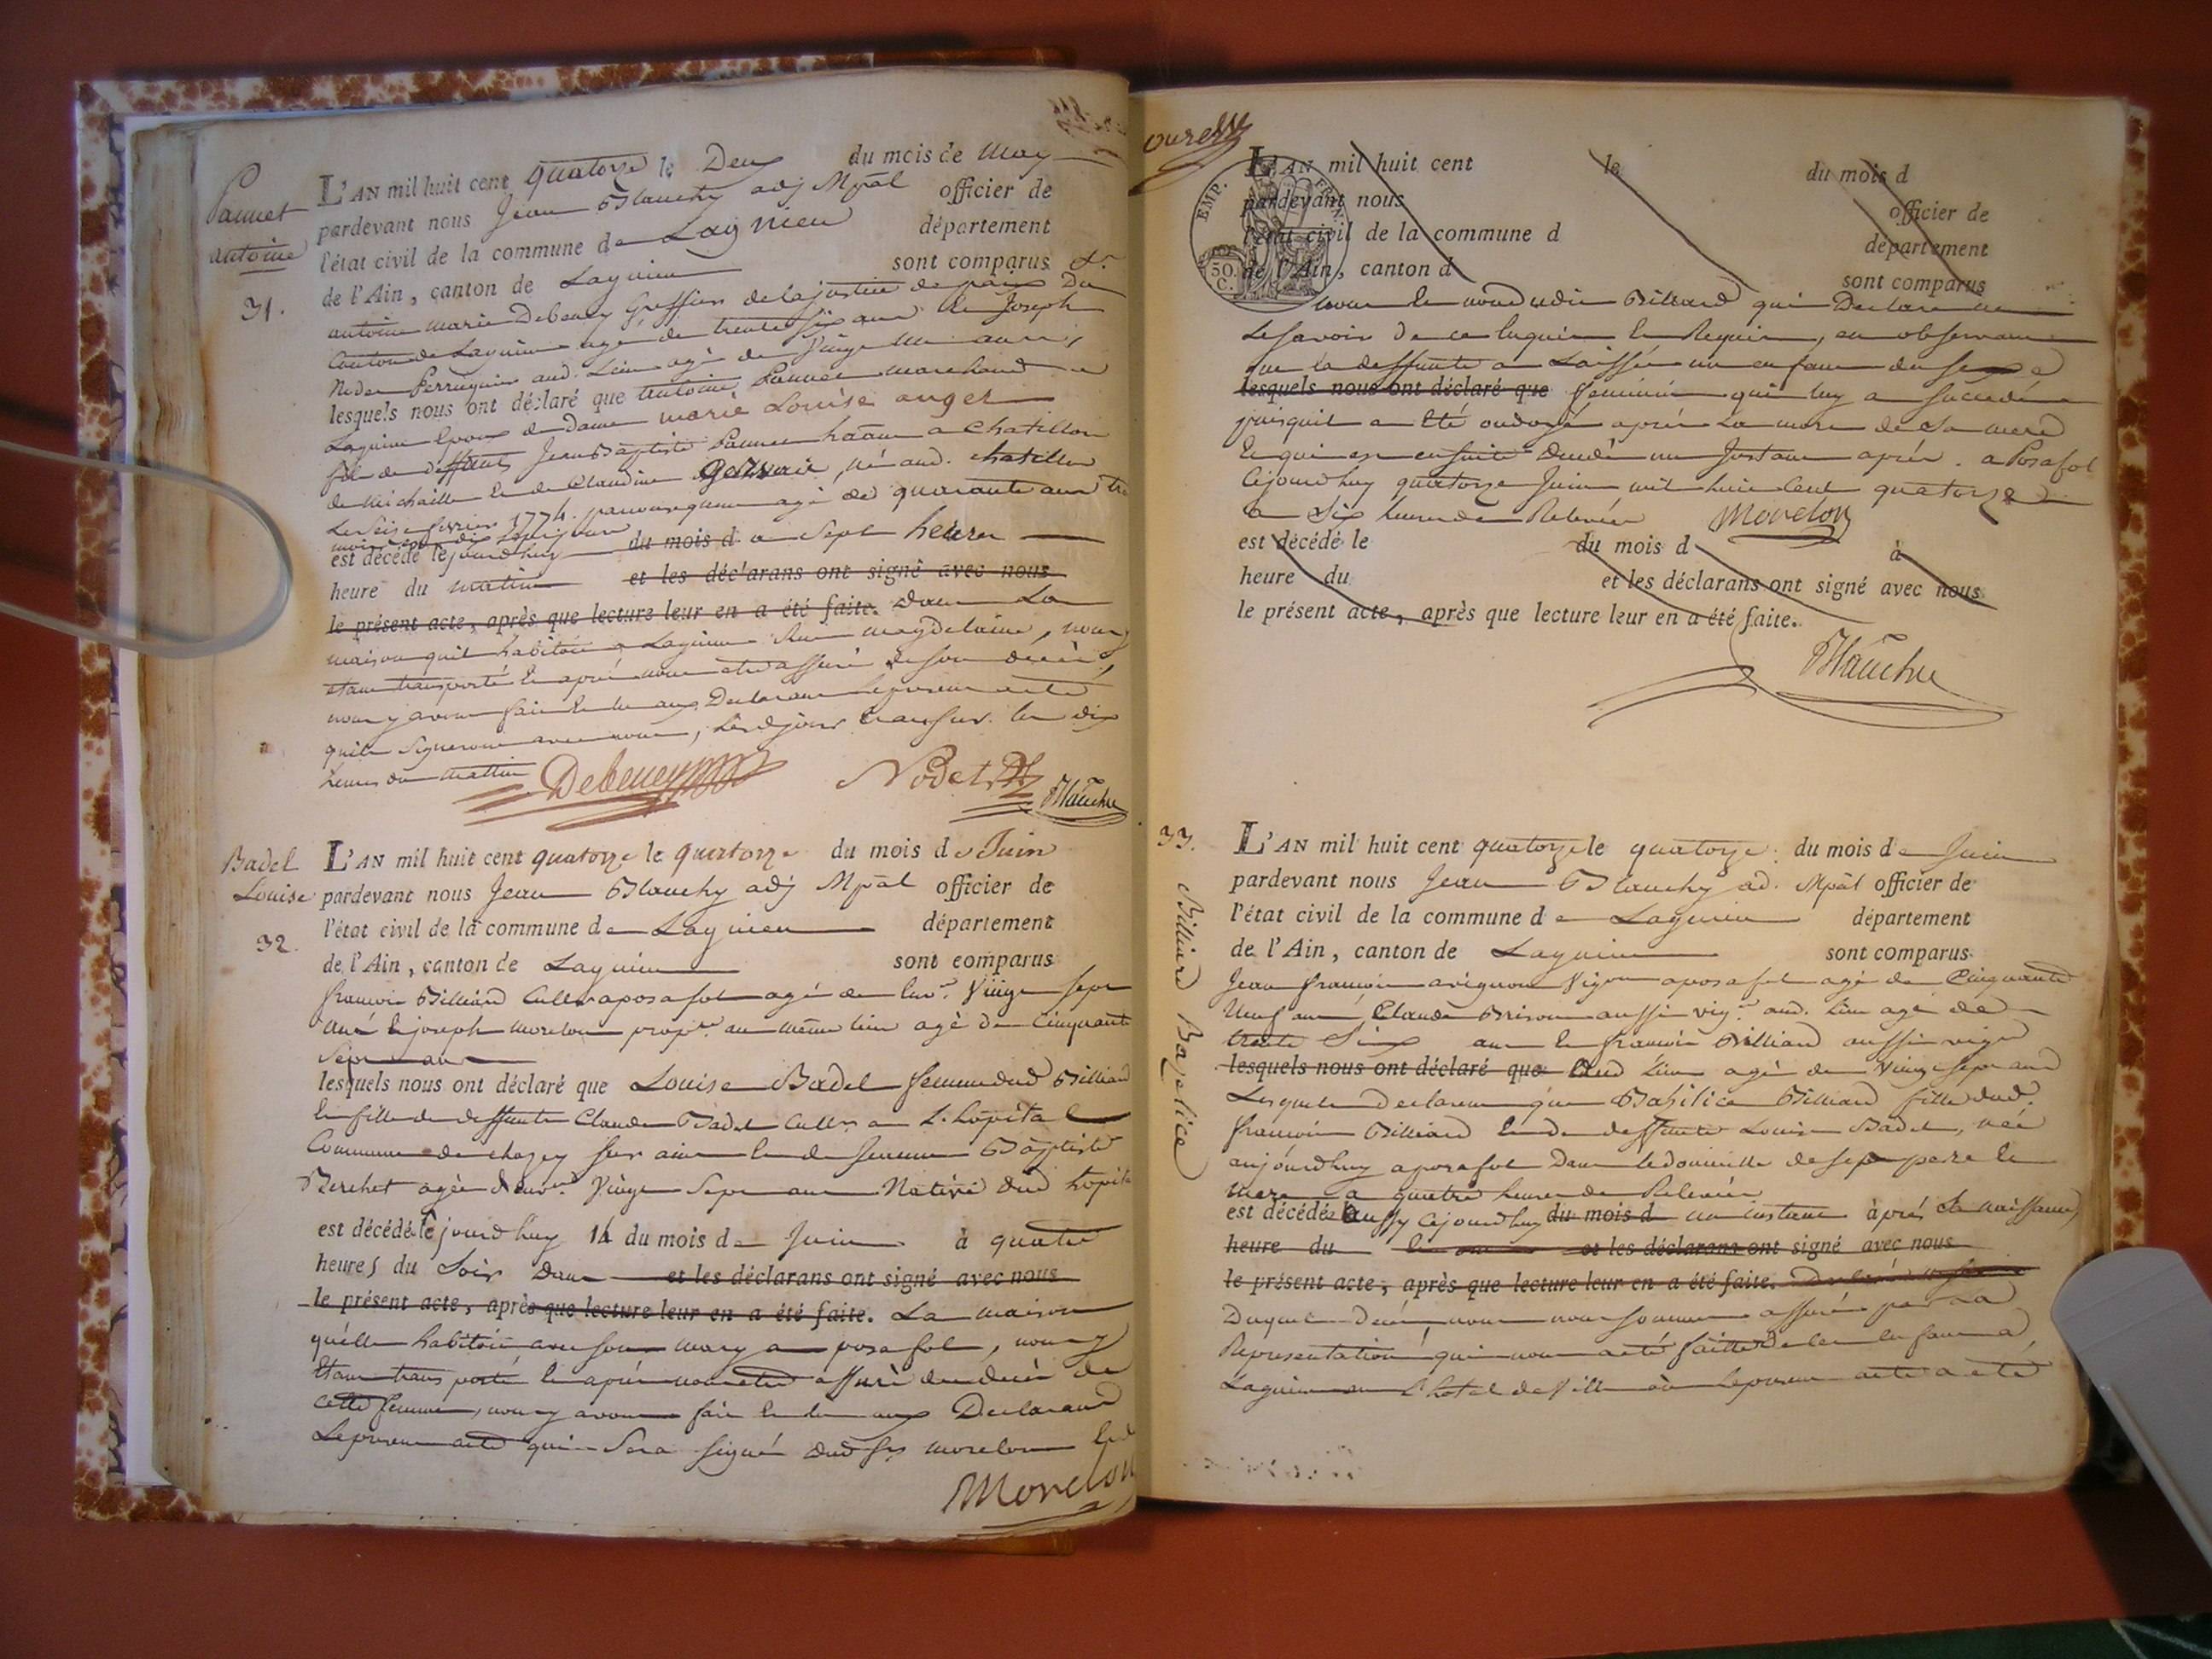 Pannet
antoine
31.
L'AN mil huit cent quatorze le Deux du mois de May
pardevant nous Jean Blanchy adj Mpal officier de
l'état civil de la commune de Lagnieu département
de l'Ain, canton de Lagnieu sont comparus Sr
antoine marie Debeney Greffier de la justice de paix Du
Canton de Lagnieu agé de trente six ans et Joseph
Nodet Perruquier aud. Lieu agé de Vingt ans,
lesquels nous ont déclaré que antoine Pannet marchand a
Lagnieu Epoux de Dame marie Louise anger
fils de deffunts Jean Baptiste Pannet a Chatillon
de Michaille et de Claudine né aud. chatillon
Le Seize fevrier 1774. par consequent agé de quarante ans
est décédé cejourdhuy du mois d a Sept heures
heure du matin et les déclarans ont signé avec nous
le présent acte, après que lecture leur en a été faite. Dans La
maison quil habitoit a Lagnieu Rue magdelaine, nous y
etant transporté et aprés nous etre assuré de son décès,
nous y avons fait et lu aux Declarans le present acte
quils Signeront avec nous, Lesd jour et an sus. les dix
heures du mattin Debeney Nodet Blanchy
Badel
Louise
32.
L'AN mil huit cent quatorze le quatorze du mois de Juin
pardevant nous Jean Blanchy adj Mpal officier de
l'état civil de la commune de Lagnieu département
de l'Ain, canton de Lagnieu sont comparus
francois Billiard Cultr a posafol agé de Env.n Vingt sept
ans et joseph morelon propre au même lieu agé de Cinquante
Sept ans
lesquels nous ont déclaré que Louise Badel femme dud Billiard
et fille de deffunts Claude Badel Cultr a L. hopital
Commune de chazey sur ain et de Baptiste
Berchet agée d'env.n Vingt Sept ans Native dud hopital
est décédé cejourdhuy 14 du mois de Juin à quatre
heures du Soir Dans et les déclarans ont signé avec nous
le présent acte, après que lecture leur en a été faite. La maison
qu'elle habitoit avec son mary a posafol, nous y
Etant transporté et aprés nous etre assuré du decès de
cette femme, nous y avons fait et lu aux Declarans
Le present acte qui Sera signé dud morelon
Morelon
L'AN mil huit cent le du mois d
pardevant nous officier de
l'état civil de la commune d département
de l'Ain, canton d sont comparus
EMP. FRAN.
50. C.
nous et non dudit Billiard qui Declare ne
Le savoir de ce enquis et Requis, en observant
que la deffunte a Laissée un enfant du sexe
lesquels nous ont déclaré que feminin qui luy a succedé
puisquil a Eté ondoyé aprés La mort de Sa mere
Et qui est ensuite decedé un Instant aprés. a Posafol
Cejourdhuy quatorze Juin mil huit Cent quatorze
a Six heures de Relevée Morelon
est décédé le du mois d à
heure du et les déclarans ont signé avec nous
le présent acte, après que lecture leur en a été faite.
Blanchy
33.
Billiard Bazelice
L'AN mil huit cent quatorze le quatorze du mois de Juin
pardevant nous Jean Blanchy ad. Mpal officier de
l'état civil de la commune de Lagnieu département
de l'Ain, canton de Lagnieu sont comparus
Jean francois avignon Vigon a posafol agé de Cinquante
Neuf ans, Claude Brison aussi vig.n aud. Lieu agé de
trente Six ans et francois Billiard aussi vign
lesquels nous ont déclaré que Aud Lieu agé de Vingt sept ans
Lesquels declarent que Bazilice Billiard fille dud.
francois Billiard et de deffunte Louise Badel, née
aujourdhuy a posafol Dans le domicille de ses pere et
mere a quatre heures de Relevée
est décédée aussy cejourdhuy du mois d un instant après Sa naissance,
heure du et les déclarans ont signé avec nous
le présent acte, après que lecture leur en a été faite.
Duquel Decés, nous nous sommes assuré par la
Representation qui nous a eté faitte de cet enfant a
Lagnieu en L'hotel de Ville où le present acte a eté